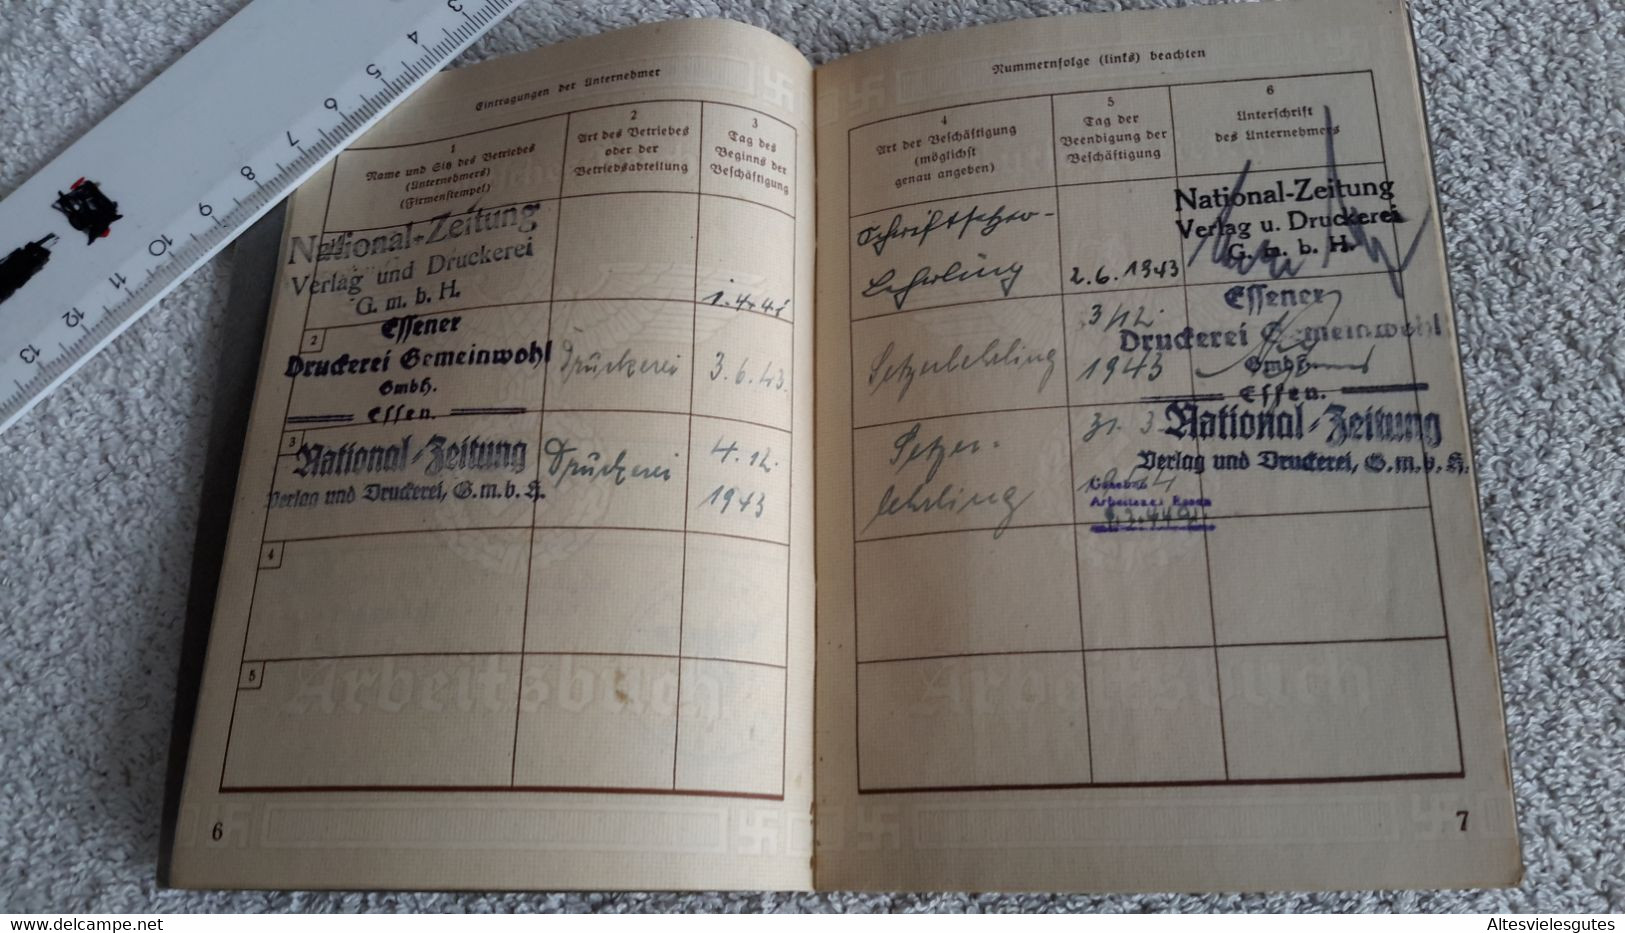 3
4
5
6
7
8
9
10
11
12
13
Eintragungen der Unternehmer
1
Name und Sitz des Betriebes
(Unternehmers)
(Firmenstempel)
2
Art des Betriebes
oder der
Betriebsabteilung
3
Tag des
Beginns der
Beschäftigung
National-Zeitung
Verlag und Druckerei
G. m. b. H.
1.4.41
2
Essener
Druckerei Gemeinwohl
GmbH.
Essen.
Druckerei
3.6.43.
3
National-Zeitung
Verlag und Druckerei, G.m.b.H.
Druckerei
4.12.
1943
4
5
Arbeitsbuch
6
Nummernfolge (links) beachten
4
Art der Beschäftigung
(möglichst
genau angeben)
5
Tag der
Beendigung der
Beschäftigung
6
Unterschrift
des Unternehmers
Schriftsetzer-
Lehrling
2.6.1943
National-Zeitung
Verlag u. Druckerei
G. m. b. H.
Setzerlehrling
3/12.
1943
Essener
Druckerei Gemeinwohl
GmbH.
Essen.
Setzer-
lehrling
31. 3.
National-Zeitung
Verlag und Druckerei, G.m.b.H.
Arbeitsbuch
7
www.delcampe.net
Altesvielesgutes